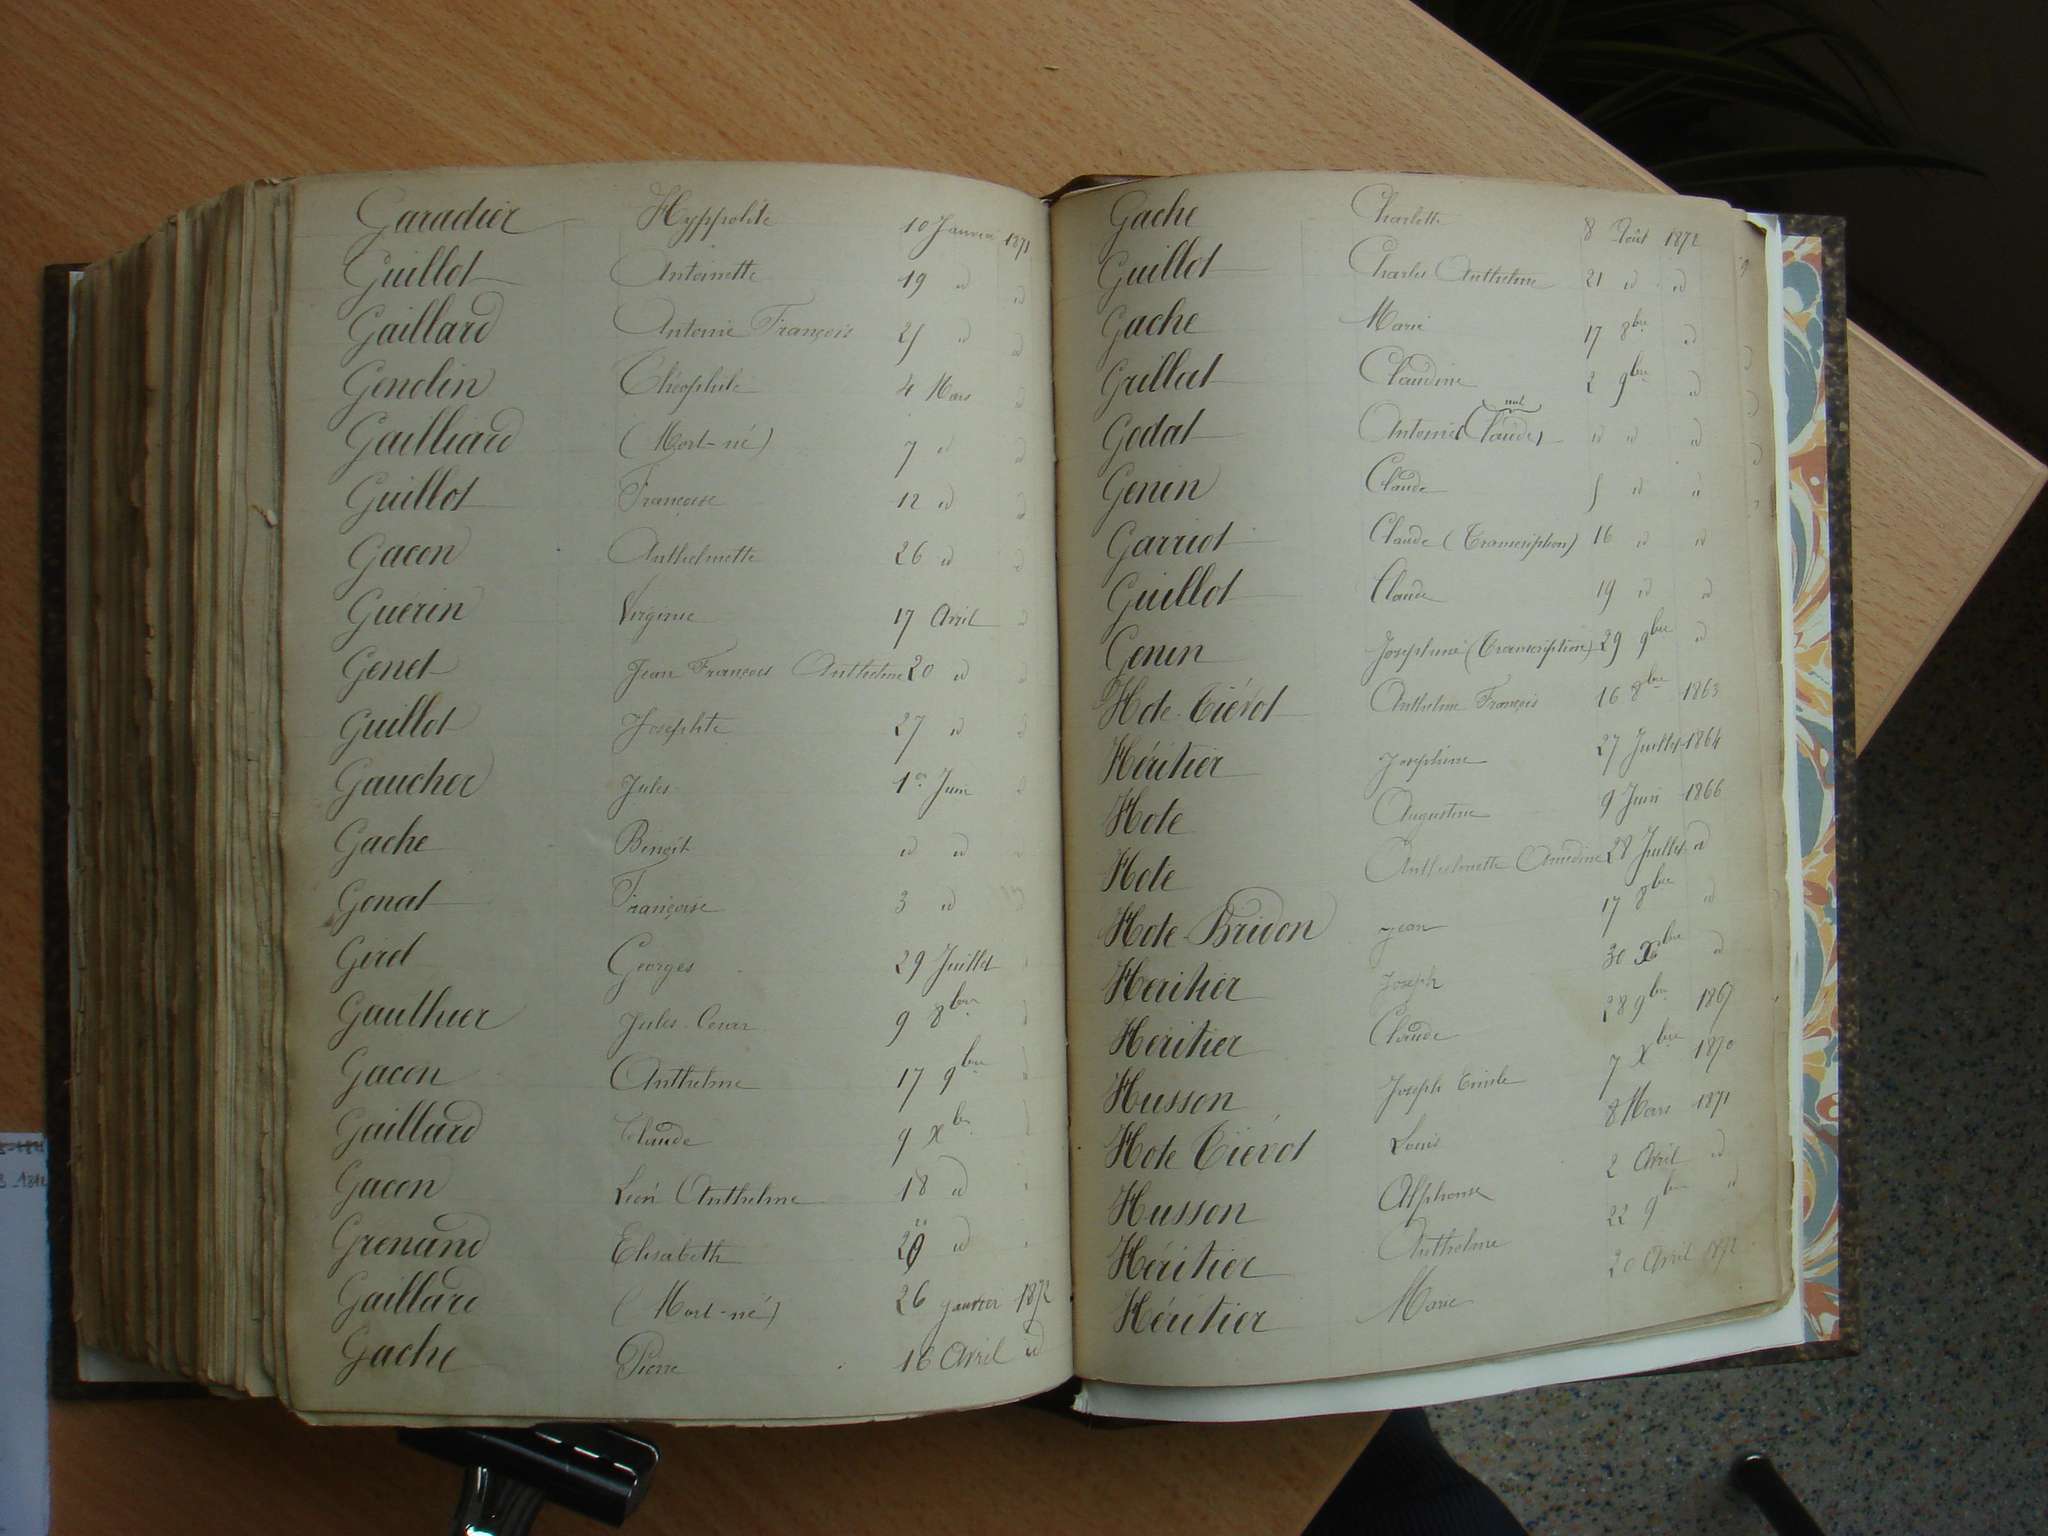 Garadier Hyppolite 10 Janvier 1871
Guillot Antoinette 19 id id
Gaillard Antoine François 25 id id
Gendin Théophile 4 Mars id
Gailliard (Mort-né) 7 id id
Guillot Françoise 12 id id
Gacon Anthelmette 26 id id
Guérin Virginie 17 Avril id
Genet Jean François Anthelme 20 id id
Guillot Josephte 27 id id
Gaucher Jules 1er Juin id
Gache Benoit id id
Gonat Françoise 3 id id
Giret Georges 29 Juillet
Gauthier Jules 9 8bre
Gacon Anthelme 17 9bre
Gaillard Claude 9 xbre
Gacon Léon Anthelme 18 id
Grenand Elisabeth 20 id
Gaillard (Mort-né) 26 janvier 1872
Gache Pierre 16 Avril id
Gache Charlotte 8 Août 1872
Guillot Charles Anthelme 21 id id
Gache Marie 17 8bre id
Grillat Claudine 2 9bre id
nul
Godat Antoine (Claude) id id id
Genin Claude 5 id id
Garriot Claude (Transcription) 16 id id
Guillot Claude 19 id id
Genin Josephine (Transcription) 29 9bre id
Hote-Tiévot Anthelme François 16 8bre 1863
Héritier Josephine 27 Juillet 1864
Hote Augustine 9 Juin 1866
Hote Anthelmette Claudine 28 Juillet id
Hote-Bridon Jean 17 8bre id
Heritier Joseph 30 Xbre id
Heritier Claude 28 9bre 1867
Husson Joseph Emile 7 Xbre 1870
Hote Tiévot Louis 8 Mars 1871
Husson Alphonse 2 Avril id
Héritier Anthelme 22 9bre id
Héritier Marie 20 Avril 1872